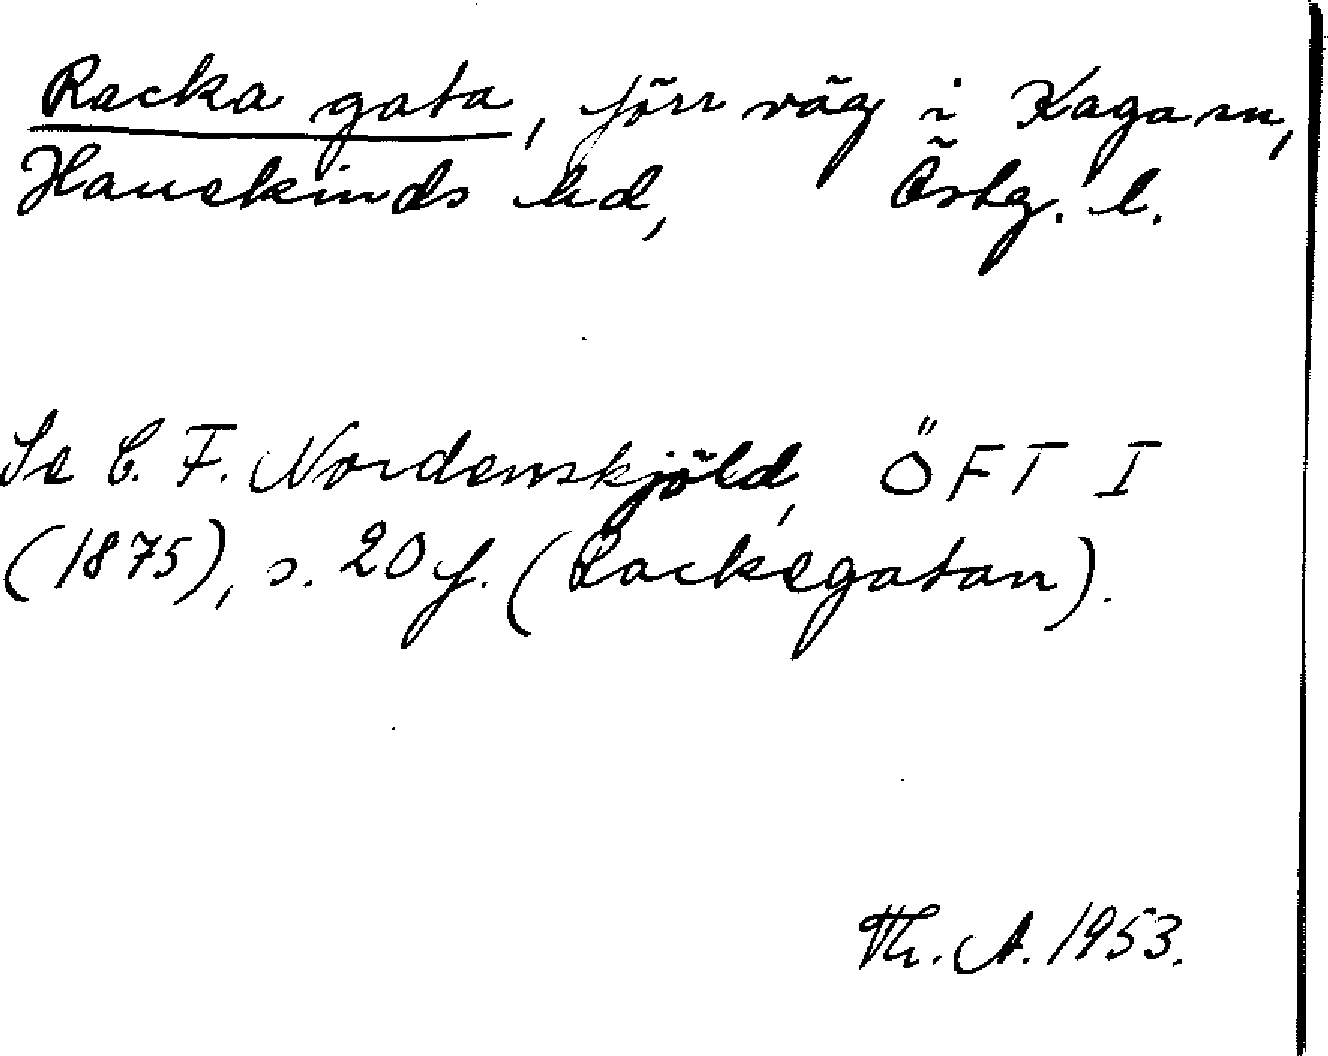 Racka gata, förr väg i Kaga sn,
Hanekinds hd, Östg. l.
Se C. F. Nordenskjöld, ÖFT I
(1875), s. 20 f. (Rackegatan).
Th. A. 1953.